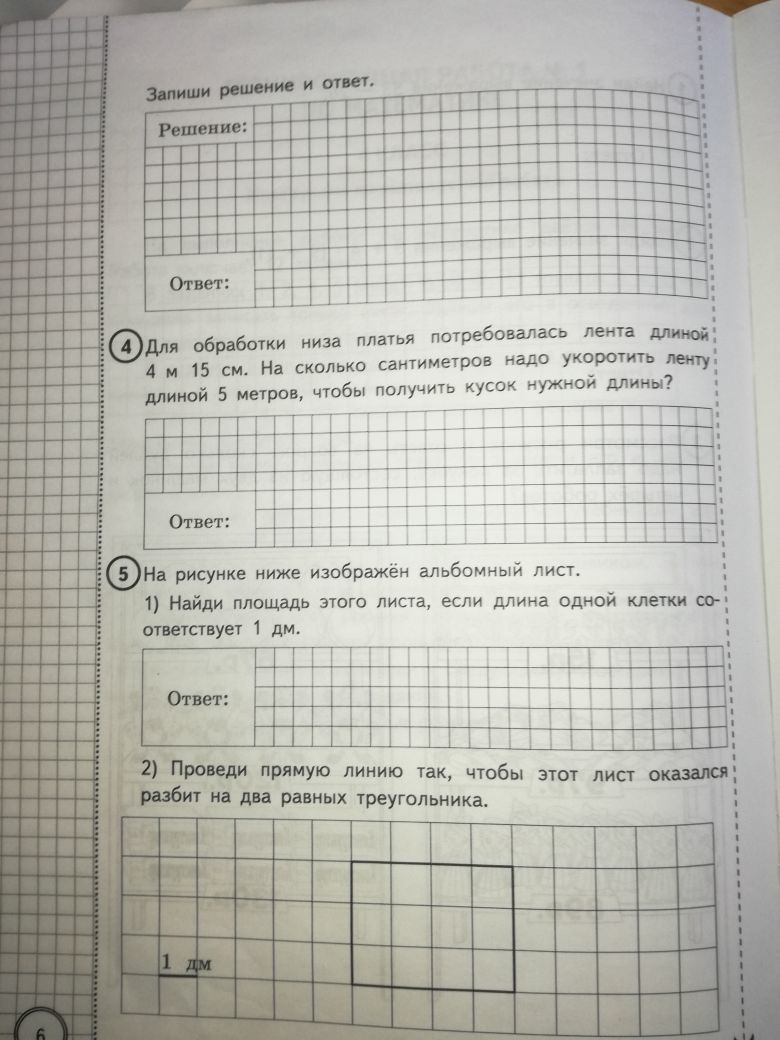 Запиши решение и ответ.
Решение:
Ответ:
4 Для обработки низа платья потребовалась лента длиной
4 м 15 см. На сколько сантиметров надо укоротить ленту
длиной 5 метров, чтобы получить кусок нужной длины?
Ответ:
5 На рисунке ниже изображён альбомный лист.
1) Найди площадь этого листа, если длина одной клетки со-
ответствует 1 дм.
Ответ:
2) Проведи прямую линию так, чтобы этот лист оказался
разбит на два равных треугольника.
1 дм
6